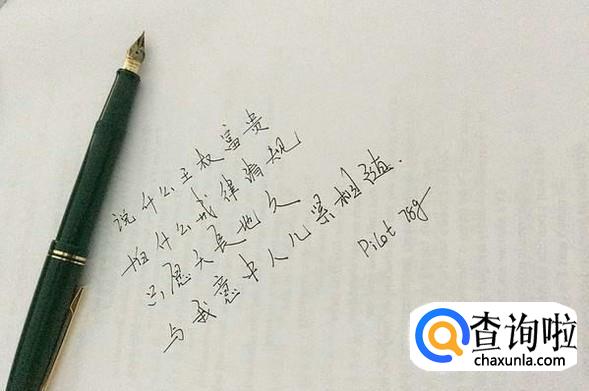 说什么王权富贵
怕什么戒律清规
只愿天长地久
与我意中人儿紧相随.
Pilot 78g
查询啦
chaxunla.com